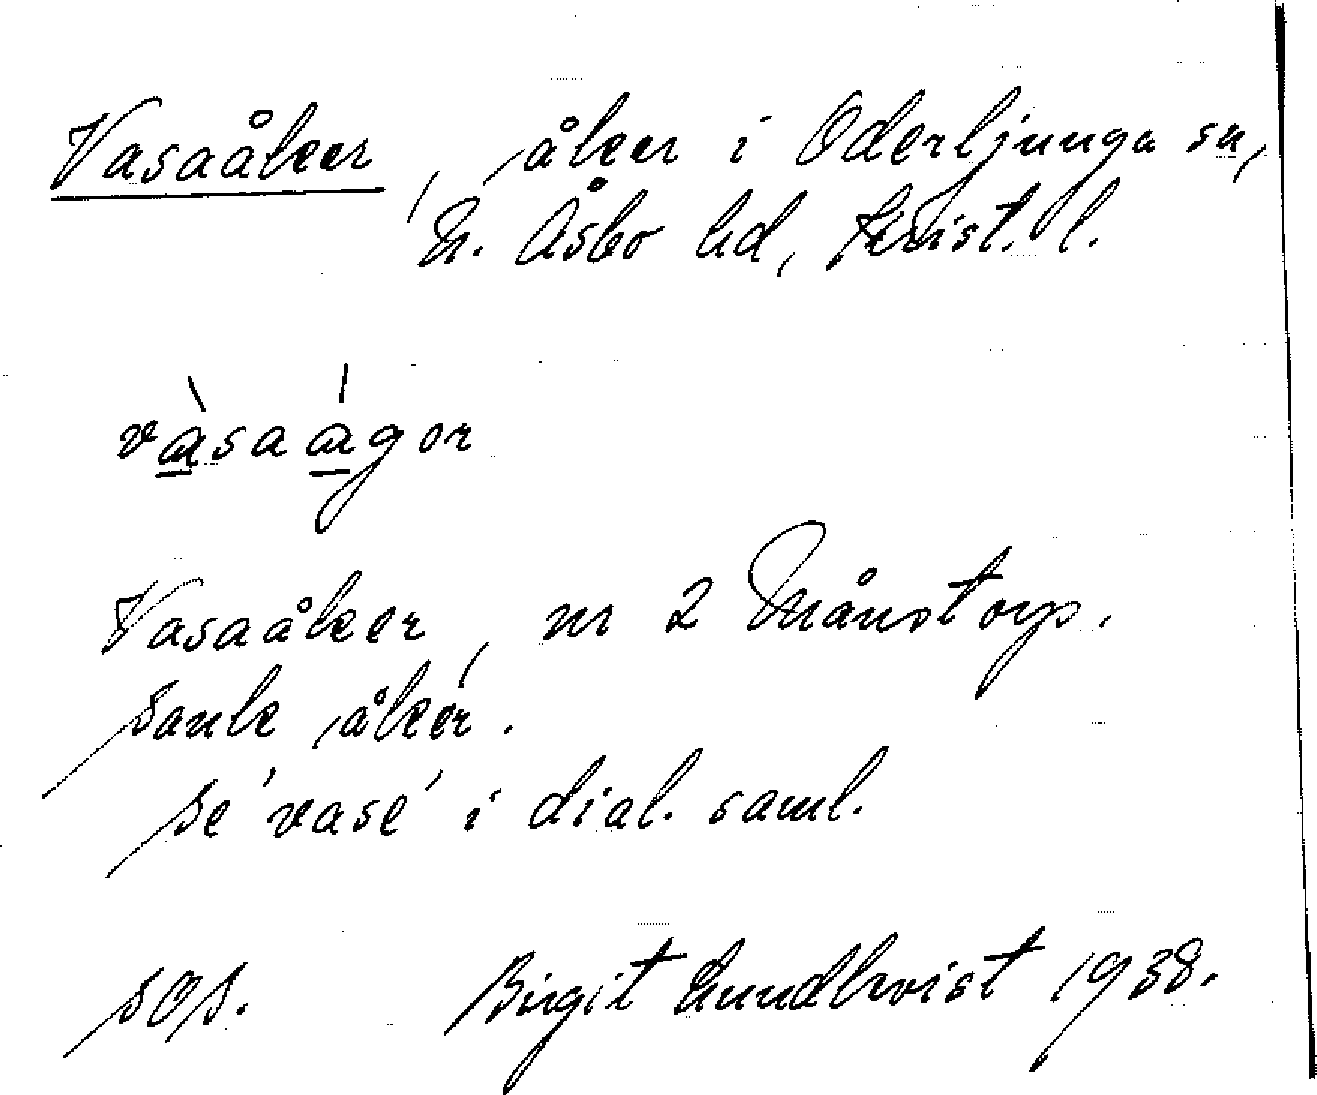 Vasaåker, åker i Oderljunga sn,
N. Åsbo hd, Krist. l.
vàsaágor
Vasaåker, nr 2 Månstorp.
Sank åker.
Se 'vase' i dial. saml.
SOS. Birgit Lundkvist 1938.